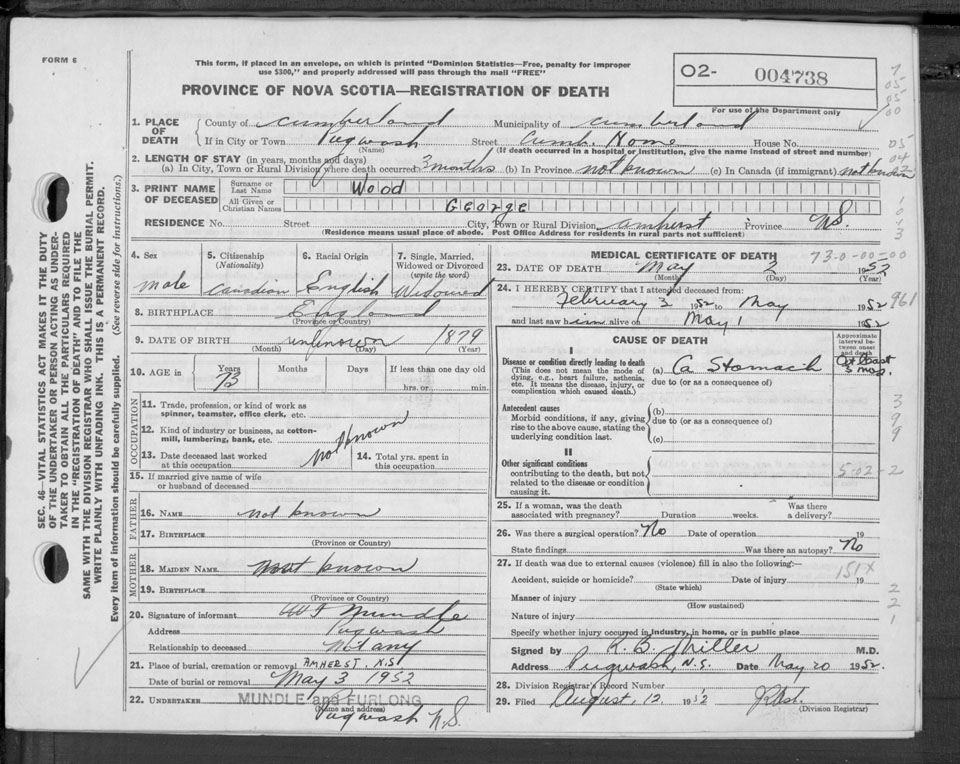 FORM 6
This form, if placed in an envelope, on which is printed "Dominion Statistics—Free, penalty for improper
use $300," and properly addressed will pass through the mail "FREE"
O2- 004738
For use of the Department only
PROVINCE OF NOVA SCOTIA—REGISTRATION OF DEATH
SEC. 46—VITAL STATISTICS ACT MAKES IT THE DUTY
OF THE UNDERTAKER OR PERSON ACTING AS UNDER-
TAKER TO OBTAIN ALL THE PARTICULARS REQUIRED
IN THE "REGISTRATION OF DEATH" AND TO FILE THE
SAME WITH THE DIVISION REGISTRAR WHO SHALL ISSUE THE BURIAL PERMIT.
WRITE PLAINLY WITH UNFADING INK. THIS IS A PERMANENT RECORD.
Every item of information should be carefully supplied. (See reverse side for instructions.)
1. PLACE OF DEATH County of Cumberland Municipality of Cumberland
If in City or Town Pugwash Street Cumb. Home House No.
(Name) (If death occurred in a hospital or institution, give the name instead of street and number)
2. LENGTH OF STAY (in years, months and days)
(a) In City, Town or Rural Division where death occurred 3 months (b) In Province not known (c) In Canada (if immigrant) not known
3. PRINT NAME OF DECEASED Surname or Last Name Wood
All Given or Christian Names George
RESIDENCE No. Street City, Town or Rural Division Amherst Province N.S.
(Residence means usual place of abode. Post Office Address for residents in rural parts not sufficient)
4. Sex male
5. Citizenship (Nationality) Canadian
6. Racial Origin English
7. Single, Married, Widowed or Divorced (write the word) Widowed
8. BIRTHPLACE England
(Province or Country)
9. DATE OF BIRTH unknown 1879
(Month) (Day) (Year)
10. AGE in Years 73 Months Days If less than one day old
hrs. or min.
OCCUPATION
11. Trade, profession, or kind of work as
spinner, teamster, office clerk, etc.
12. Kind of industry or business, as cotton-
mill, lumbering, bank, etc.
not known
13. Date deceased last worked
at this occupation
14. Total yrs. spent in
this occupation
15. If married give name of wife
or husband of deceased
FATHER
16. NAME not known
17. BIRTHPLACE
(Province or Country)
MOTHER
18. MAIDEN NAME not known
19. BIRTHPLACE
(Province or Country)
20. Signature of informant Mundle
Address Pugwash
Relationship to deceased Not any
21. Place of burial, cremation or removal AMHERST. N.S.
Date of burial or removal May 3 1952
22. UNDERTAKER MUNDLE and FURLONG
(Name and address)
Pugwash N.S.
MEDICAL CERTIFICATE OF DEATH
73-0-00-00
23. DATE OF DEATH May 2 1952
(Month) (Day) (Year)
24. I HEREBY CERTIFY that I attended deceased from:
February 3 1952 to May 1952
and last saw him alive on May 1 1952
961
CAUSE OF DEATH
Approximate interval between onset and death
I
Disease or condition directly leading to death
(This does not mean the mode of
dying, e.g., heart failure, asthenia,
etc. It means the disease, injury, or
complication which caused death.)
(a) Ca Stomach At least 3 mos.
due to (or as a consequence of)
Antecedent causes
Morbid conditions, if any, giving
rise to the above cause, stating the
underlying condition last.
(b)
due to (or as a consequence of)
(c)
II
Other significant conditions
contributing to the death, but not
related to the disease or condition
causing it.
5-02-2
25. If a woman, was the death
associated with pregnancy? Duration weeks. Was there
a delivery?
26. Was there a surgical operation? No Date of operation 19
State findings Was there an autopsy? No
27. If death was due to external causes (violence) fill in also the following:—
151X
Accident, suicide or homicide? Date of injury 19
(State which)
Manner of injury
(How sustained)
Nature of injury
Specify whether injury occurred in industry, in home, or in public place
Signed by R. B. Miller M.D.
Address Pugwash, N.S. Date May 20 1952.
28. Division Registrar's Record Number
29. Filed August, 12. 1952
(Division Registrar)